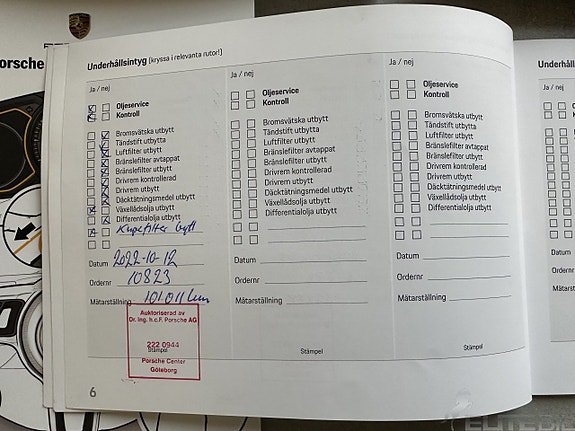 orsche
Underhållsintyg (kryssa i relevanta rutor!)
Ja / nej
Oljeservice
Kontroll
Bromsvätska utbytt
Tändstift utbytta
Luftfilter utbytt
Bränslefilter avtappat
Bränslefilter utbytt
Drivrem kontrollerad
Drivrem utbytt
Däcktätningsmedel utbytt
Växellådsolja utbytt
Differentialolja utbytt
Kupefilter bytt
Datum 2022-10-12
Ordernr 10823
Mätarställning 101011 km
Auktoriserad av
Dr. Ing. h.c.F. Porsche AG
222 0944
Stämpel
Porsche Center
Göteborg
6
Ja / nej
Oljeservice
Kontroll
Bromsvätska utbytt
Tändstift utbytta
Luftfilter utbytt
Bränslefilter avtappat
Bränslefilter utbytt
Drivrem kontrollerad
Drivrem utbytt
Däcktätningsmedel utbytt
Växellådsolja utbytt
Differentialolja utbytt
Datum
Ordernr
Mätarställning
Stämpel
Ja / nej
Oljeservice
Kontroll
Bromsvätska utbytt
Tändstift utbytta
Luftfilter utbytt
Bränslefilter avtappat
Bränslefilter utbytt
Drivrem kontrollerad
Drivrem utbytt
Däcktätningsmedel utbytt
Växellådsolja utbytt
Differentialolja utbytt
Datum
Ordernr
Mätarställning
Stämpel
Underhåll
Ja / nej
ELITEBIL